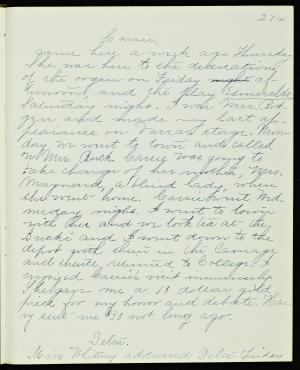 274
Carrie.
came here a week ago Thursday.
She was here to the dedication
of the organ on Friday night af
ternoon, and the play
Saturday night. I was Mrs.
and made my last ap-
pearance on Vassar stage. Mon-
day we went to town and called
on Mrs. Buck. Carrie was going to
take charge of her mother, Mrs.
Magnard, a blind lady, when
she went home. Carrie went Wed-
nesday night. I went to town
with her and we looked at the
and I went down to the
depot with them in the Carriage
and returned to College. I
enjoyed Carrie's visit immensely.
She gave me a 10 dollar gold
piece for my honor and debate. Har
ry sent me $30 not long ago.
Delta.
Miss Whitney addressed Delta Friday